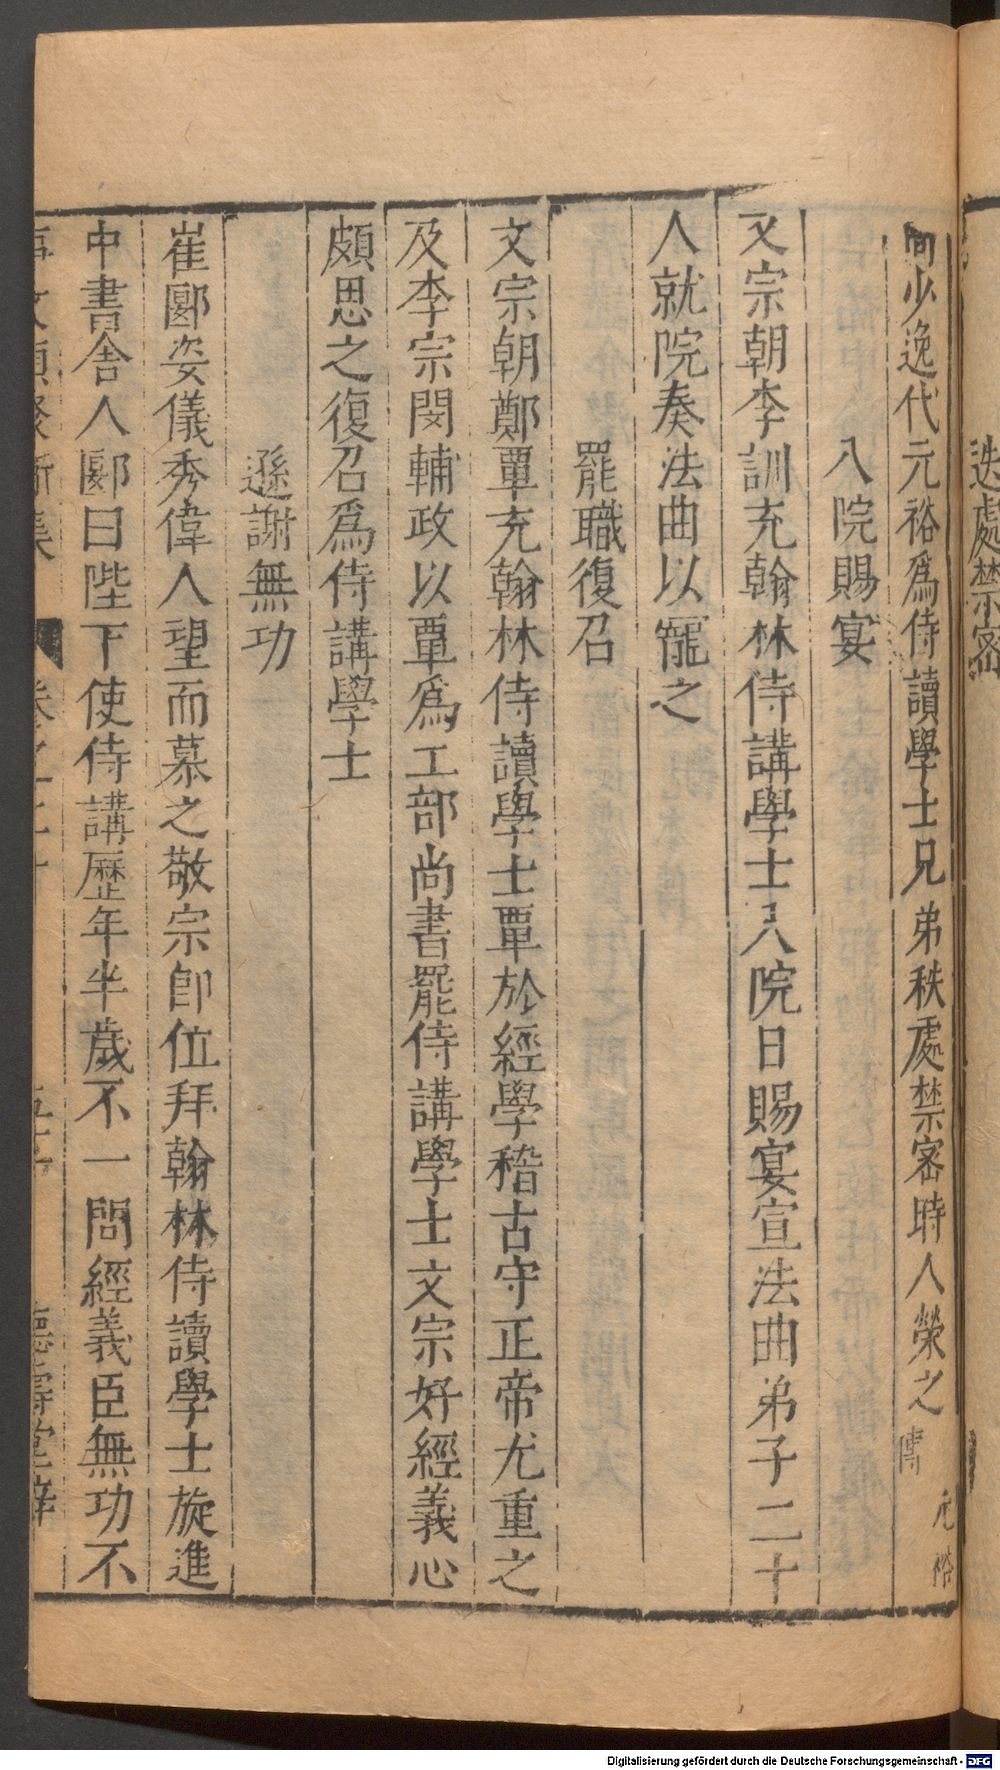 迭處禁密
間少逸代元裕爲侍讀學士兄弟秩處禁密時人榮之元裕傳
入院賜宴
文宗朝李訓充翰林侍講學士入院日賜宴宣法曲弟子二十
人就院奏法曲以寵之
罷職復召
文宗朝鄭覃充翰林侍讀學士覃於經學稽古守正帝尤重之
及李宗閔輔政以覃爲工部尚書罷侍講學士文宗好經義心
頗思之復召爲侍講學士
遜謝無功
崔郾姿儀秀偉人望而慕之敬宗卽位拜翰林侍讀學士旋進
中書舍人郾曰陛下使侍講歷年半歲不一問經義臣無功不
Digitalisierung gefördert durch die Deutsche Forschungsgemeinschaft - DFG